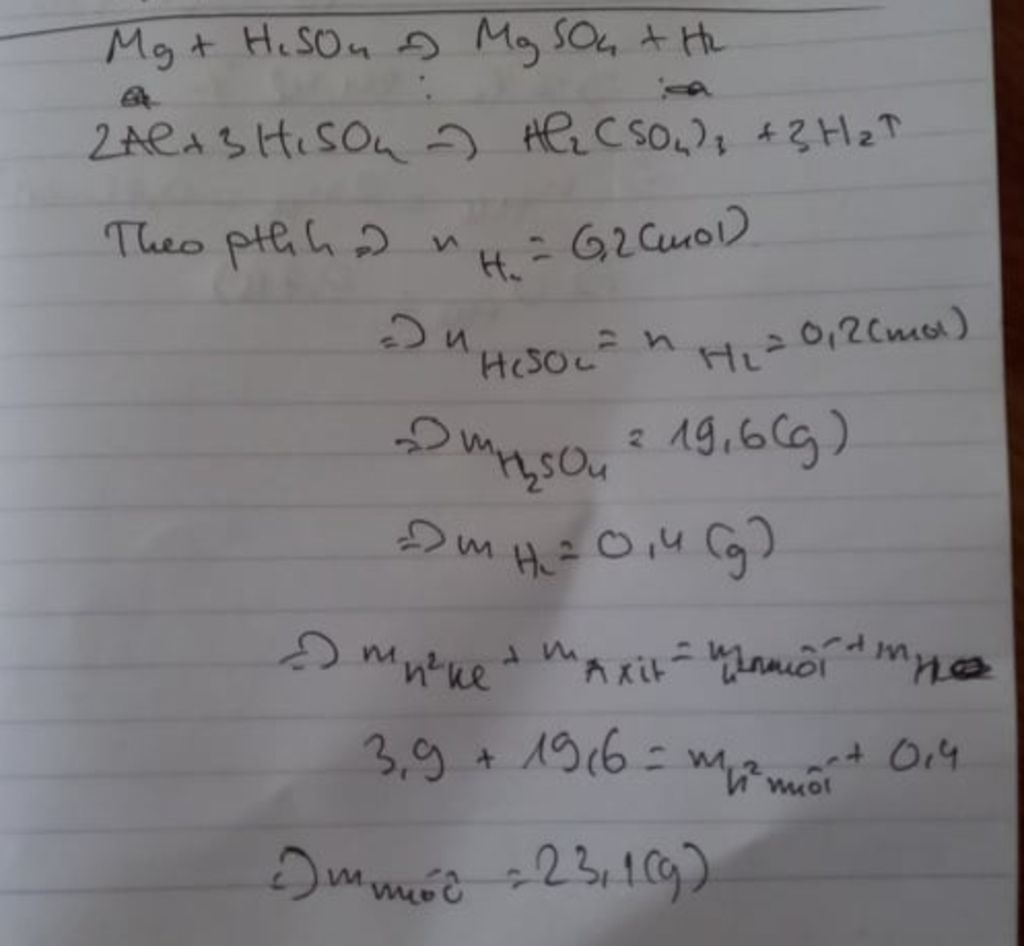 Mg + H2SO4 => MgSO4 + H2
2Al + 3H2SO4 => Al2(SO4)3 + 3H2↑
Theo pthh => n H2 = 0,2(mol)
=> n H2SO4 = n H2 = 0,2(mol)
=> m H2SO4 = 19,6(g)
=> m H2 = 0,4(g)
=> m h² ke + m Axit = m muối + m H
3,9 + 19,6 = m h² muối + 0,4
=> m muối = 23,1(g)